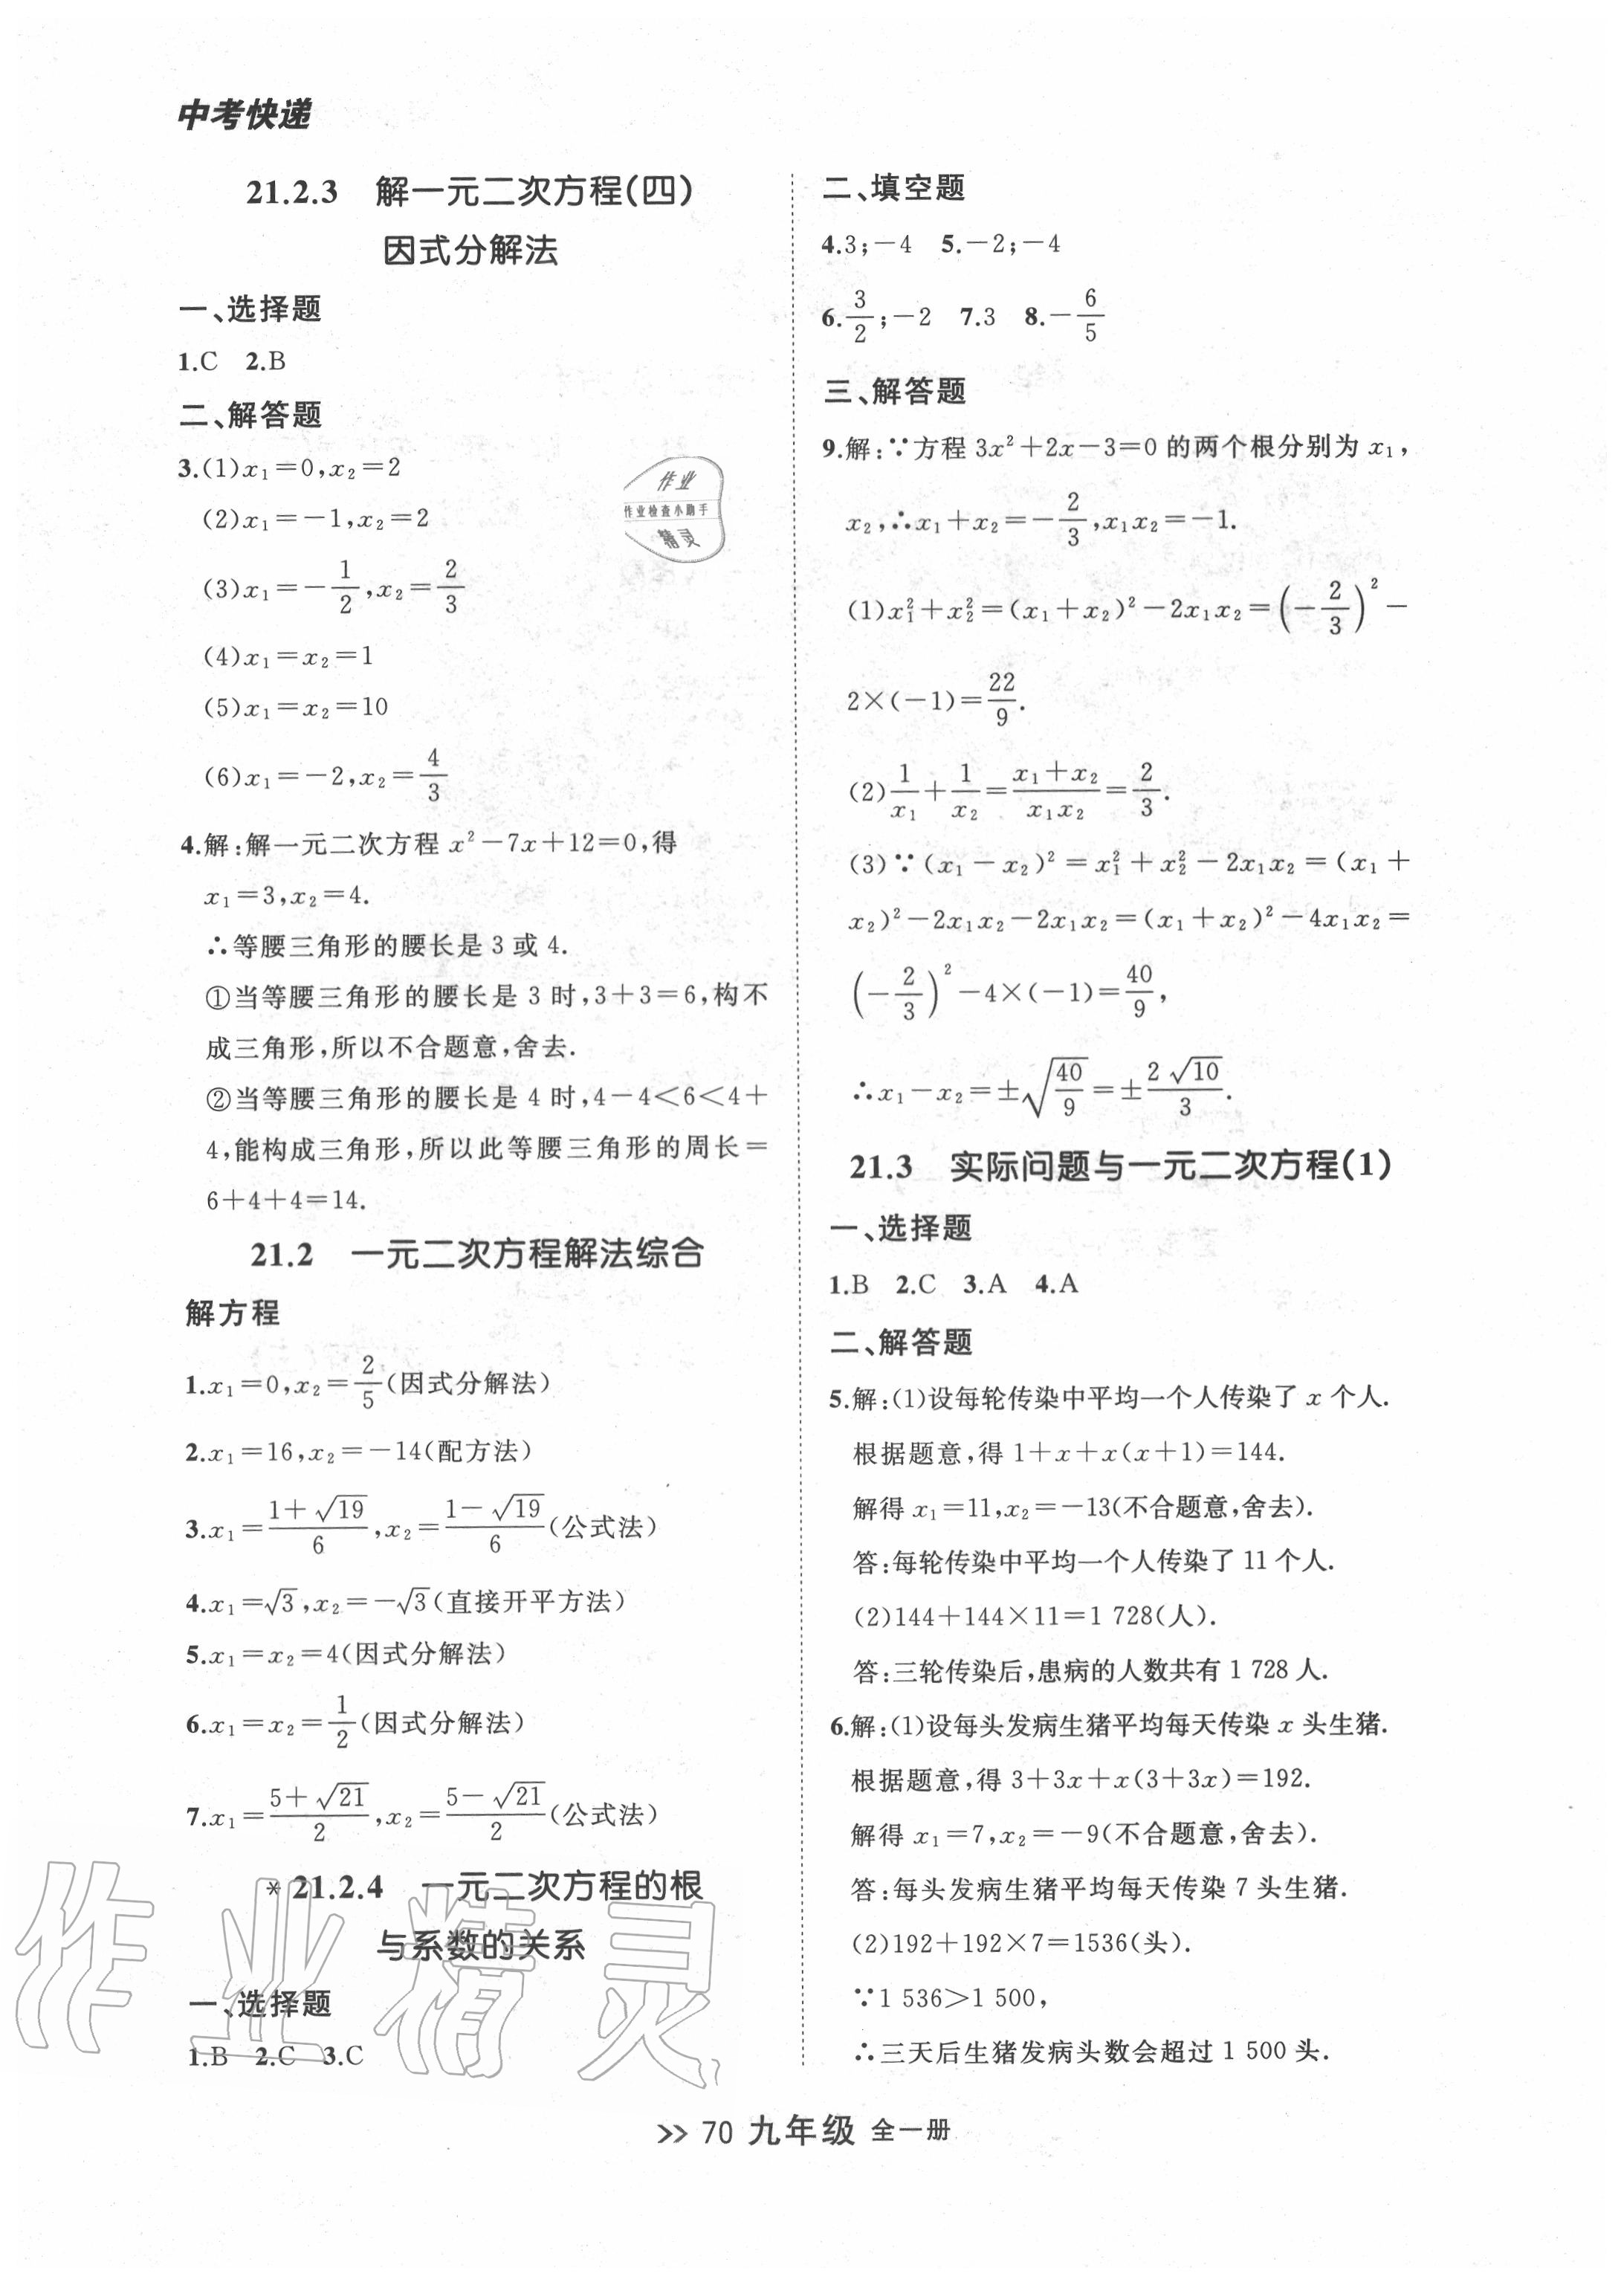 中考快递
21.2.3 解一元二次方程(四)
因式分解法
一、选择题
1.C 2.B
二、解答题
3.(1)x₁=0,x₂=2
(2)x₁=-1,x₂=2
(3)x₁=-1/2,x₂=2/3
(4)x₁=x₂=1
(5)x₁=x₂=10
(6)x₁=-2,x₂=4/3
4.解:解一元二次方程 x²-7x+12=0,得
x₁=3,x₂=4.
∴等腰三角形的腰长是 3 或 4.
①当等腰三角形的腰长是 3 时,3+3=6,构不
成三角形,所以不合题意,舍去.
②当等腰三角形的腰长是 4 时,4-4<6<4+
4,能构成三角形,所以此等腰三角形的周长=
6+4+4=14.
21.2 一元二次方程解法综合
解方程
1.x₁=0,x₂=2/5(因式分解法)
2.x₁=16,x₂=-14(配方法)
3.x₁=(1+√19)/6,x₂=(1-√19)/6(公式法)
4.x₁=√3,x₂=-√3(直接开平方法)
5.x₁=x₂=4(因式分解法)
6.x₁=x₂=1/2(因式分解法)
7.x₁=(5+√21)/2,x₂=(5-√21)/2(公式法)
*21.2.4 一元二次方程的根
与系数的关系
一、选择题
1.B 2.C 3.C
二、填空题
4.3;-4 5.-2;-4
6.3/2;-2 7.3 8.-6/5
三、解答题
9.解:∵方程 3x²+2x-3=0 的两个根分别为 x₁,
x₂,∴x₁+x₂=-2/3,x₁x₂=-1.
(1)x₁²+x₂²=(x₁+x₂)²-2x₁x₂=(-2/3)²-
2×(-1)=22/9.
(2)1/x₁+1/x₂=(x₁+x₂)/(x₁x₂)=2/3.
(3)∵(x₁-x₂)²=x₁²+x₂²-2x₁x₂=(x₁+
x₂)²-2x₁x₂-2x₁x₂=(x₁+x₂)²-4x₁x₂=
(-2/3)²-4×(-1)=40/9,
∴x₁-x₂=±√(40/9)=±2√10/3.
21.3 实际问题与一元二次方程(1)
一、选择题
1.B 2.C 3.A 4.A
二、解答题
5.解:(1)设每轮传染中平均一个人传染了 x 个人.
根据题意,得 1+x+x(x+1)=144.
解得 x₁=11,x₂=-13(不合题意,舍去).
答:每轮传染中平均一个人传染了 11 个人.
(2)144+144×11=1 728(人).
答:三轮传染后,患病的人数共有 1 728 人.
6.解:(1)设每头发病生猪平均每天传染 x 头生猪.
根据题意,得 3+3x+x(3+3x)=192.
解得 x₁=7,x₂=-9(不合题意,舍去).
答:每头发病生猪平均每天传染 7 头生猪.
(2)192+192×7=1536(头).
∵1 536>1 500,
∴三天后生猪发病头数会超过 1 500 头.
作业
作业检查小助手
精灵
作业精灵
>> 70 九年级 全一册